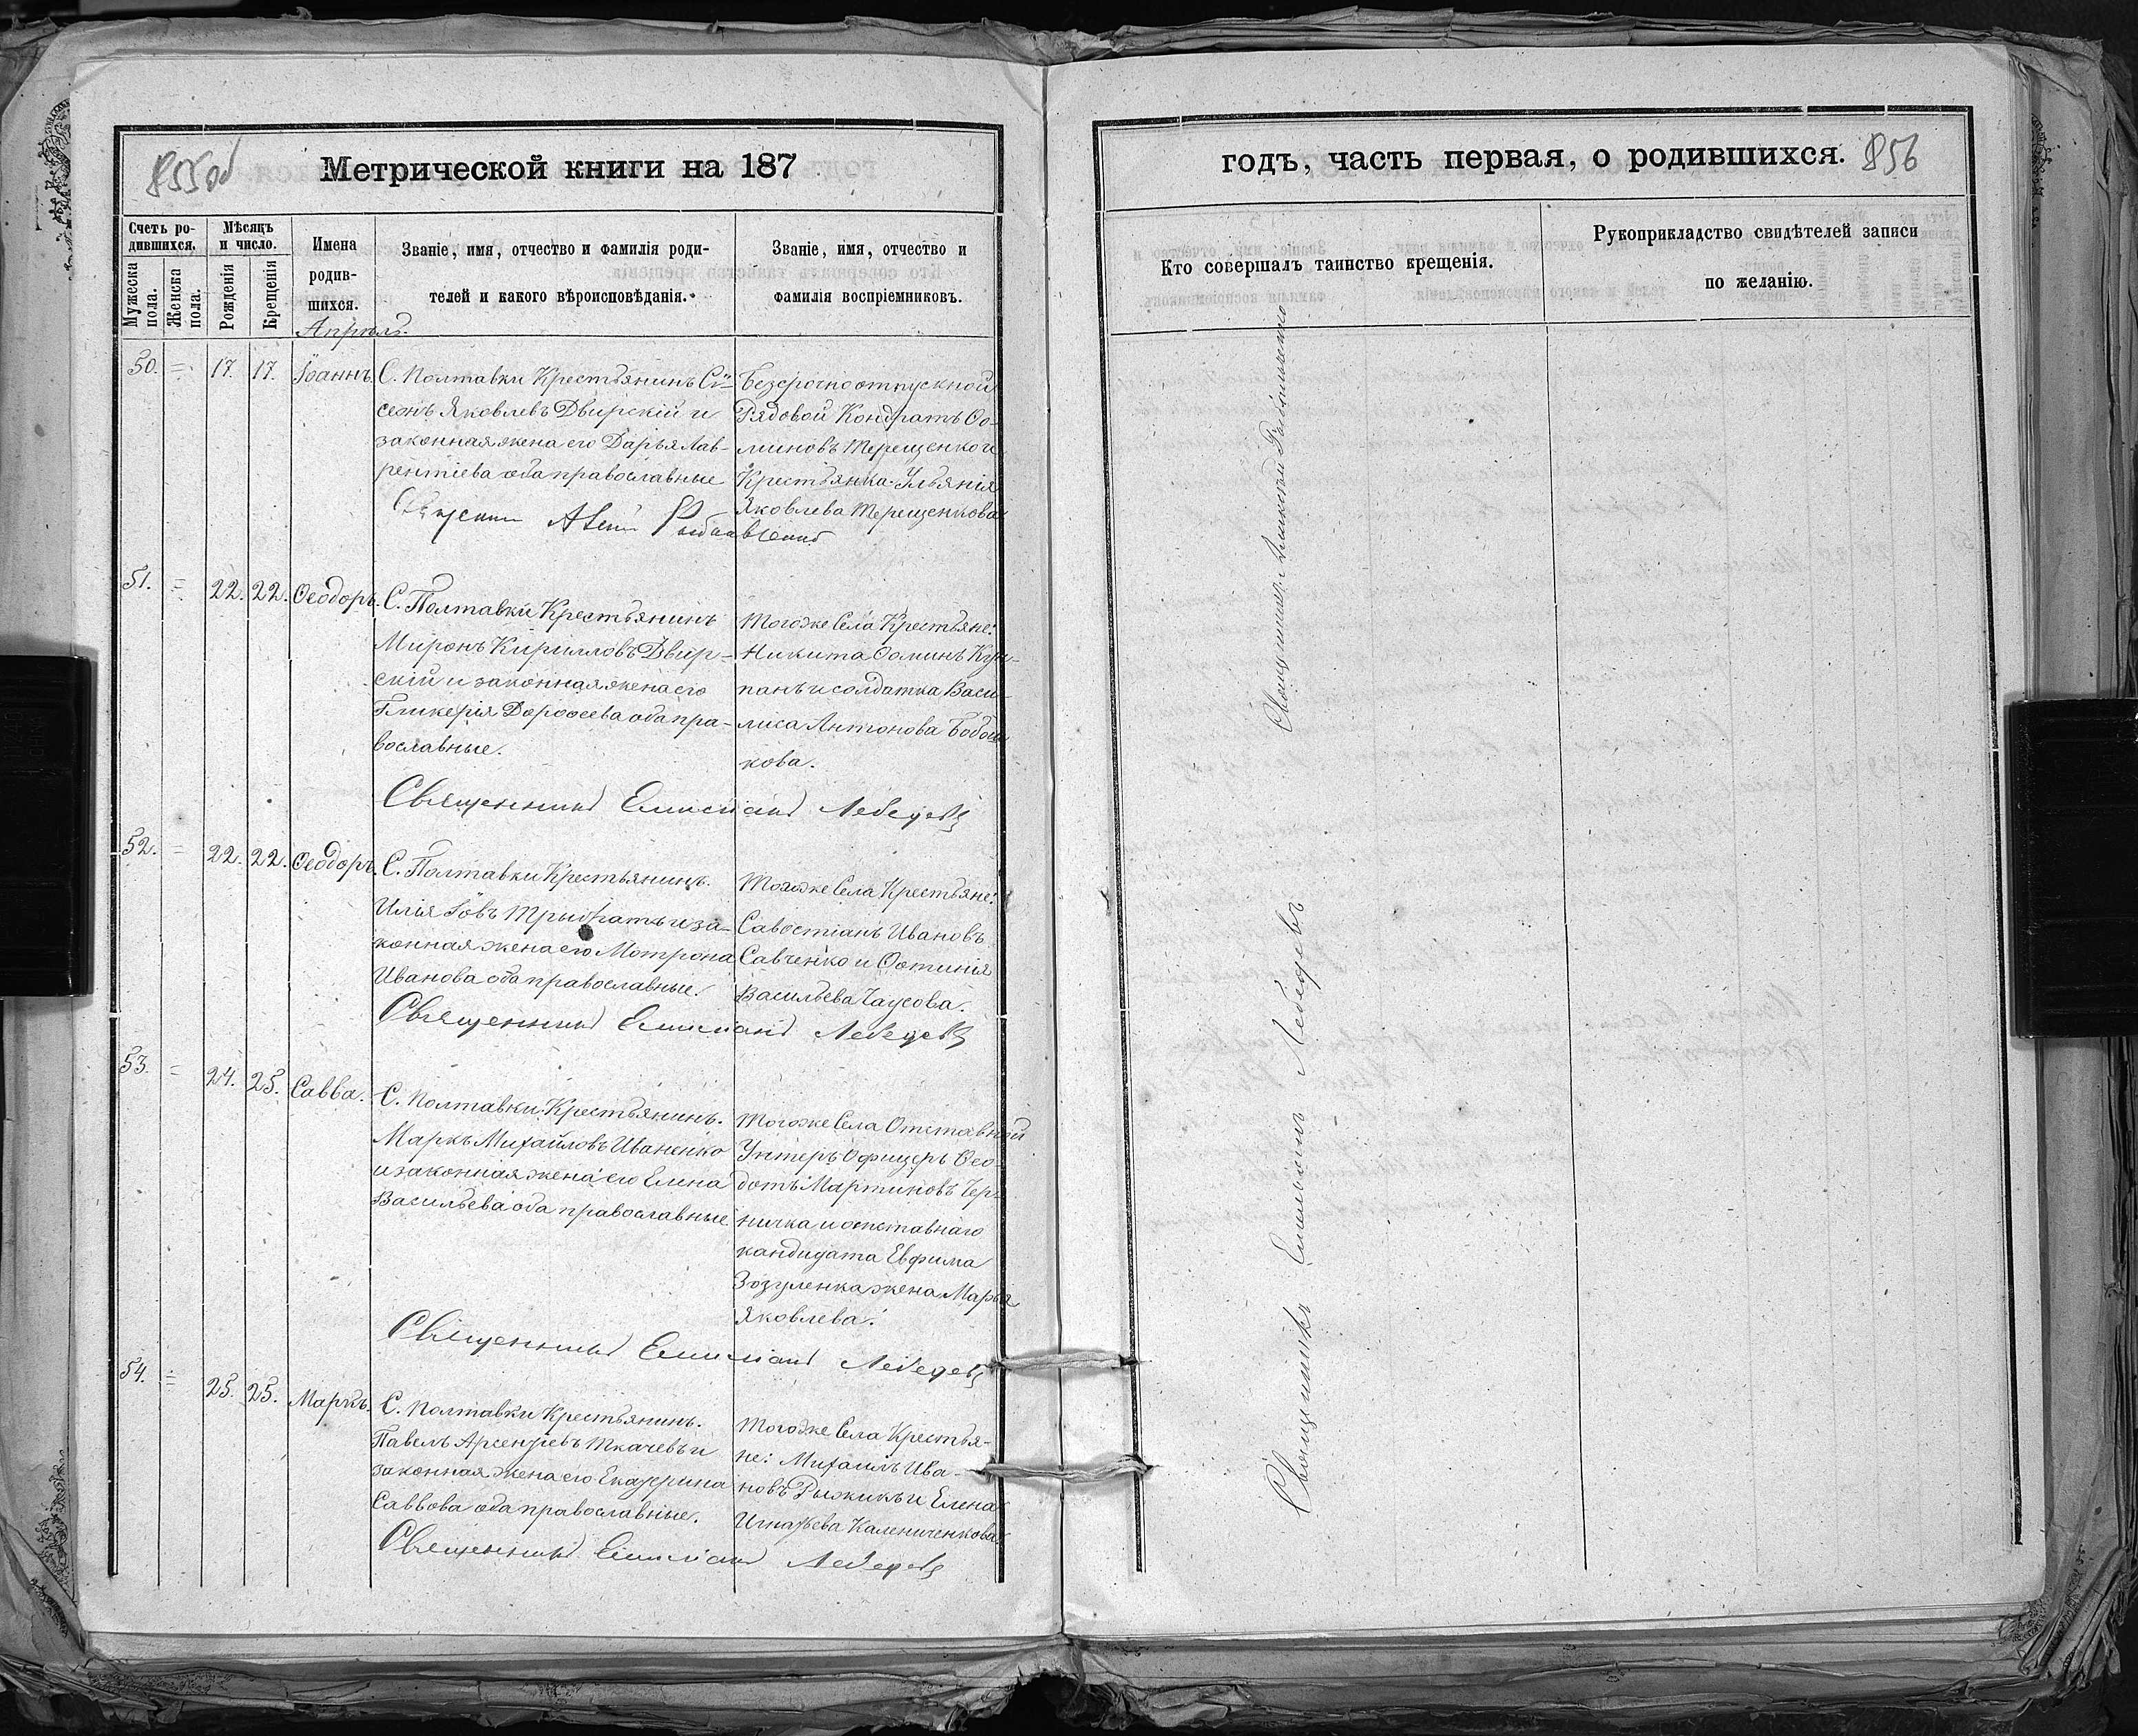 855об
Метрической книги на 187
Счетъ ро-
дившихся.
Мужеска
пола.
Женска
пола.
Мѣсяцъ
и число.
Рожденія
Крещенія
Имена
родив-
шихся.
Званіе, имя, отчество и фамилія роди-
телей и какого вѣроисповѣданія.
Званіе, имя, отчество и
фамилія воспріемниковъ.
Апрѣль.
50. = 17. 17. Іоаннъ.
С. Полтавки Крестьянинъ Сѵ-
Яковлевъ Двирскій и
законная жена его Дарья Лав-
рентіева оба православные
Безсрочноотпускной
Рядовой Кондратъ Ѳо-
миновъ Терещенко и
Крестьянка Ульянія
Яковлева Терещенкова
51. = 22. 22. Ѳеодоръ.
С. Полтавки Крестьянинъ
Миронъ Кирилловъ Двир-
скій и законная жена его
Гликерія Дороѳеева оба пра-
вославные.
Тогоже Села Крестьяне:
Никита Ѳоминъ
панъ и солдатка Васи-
лиса Антонова
кова.
Священникъ Емиліанъ Лебедевъ
52. = 22. 22. Ѳеодоръ.
С. Полтавки Крестьянинъ.
Илія Іовъ Трибратъ и за-
конная жена его Мотрона
Иванова оба православные.
Тогоже Села Крестьяне:
Савостіанъ Ивановъ
Савченко и Ѳотинія
Васильева Чаусова.
Священникъ Емиліанъ Лебедевъ
53. = 24. 25. Савва.
С. Полтавки Крестьянинъ.
Маркъ Михайловъ Иваненко
и законная жена его Елена
Васильева оба православные
Тогоже Села Отставный
Унтеръ Офицеръ Ѳео-
дотъ Мартиновъ Чер-
ничка и отставнаго
кандидата Евфима
Зозуленка жена Марья
Яковлева.
Священникъ Емиліанъ Лебедевъ
54. = 25. 25. Маркъ.
С. Полтавки Крестьянинъ.
Павелъ Арсентіевъ Ткачевъ и
законная жена его Екатерина
Саввова оба православные.
Тогоже Села Крестья-
не: Михаилъ Ива-
новъ Рыжикъ и Елена
Игнатьева Калениченкова.
Священникъ Емиліанъ Лебедевъ
годъ, часть первая, о родившихся.
856
Кто совершалъ таинство крещенія.
Рукоприкладство свидѣтелей записи
по желанію.
Священникъ
Священникъ Емиліанъ Лебедевъ